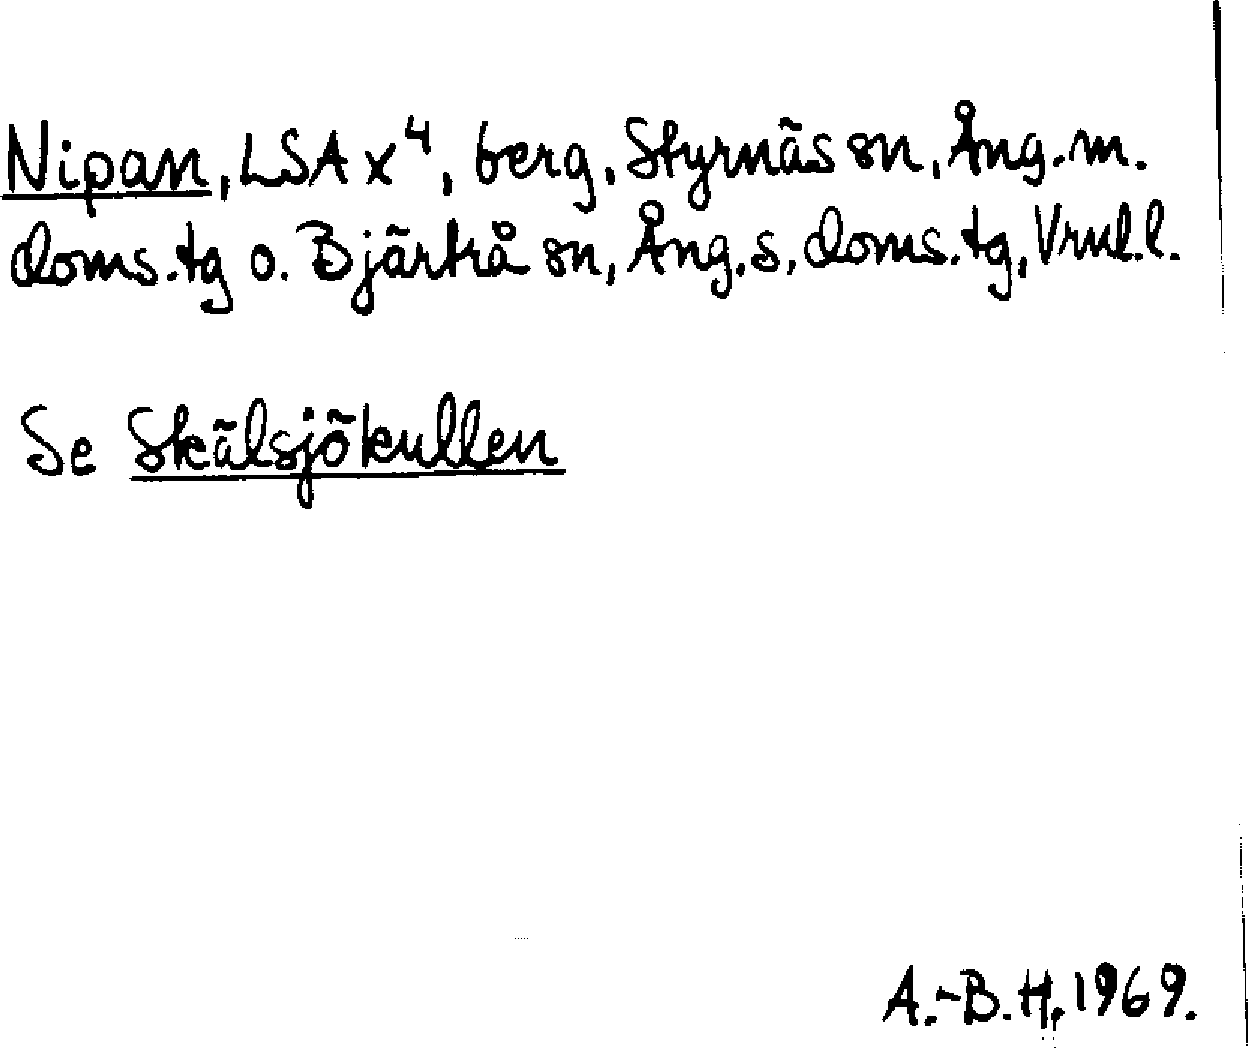 Nipan, LSA x⁴, berg, Styrnäs sn, Ång. m.
doms.tg o. Bjärtrå sn, Ång. s. doms.tg, Vrnl.l.
Se Skälsjökullen
A.-B.H. 1969.